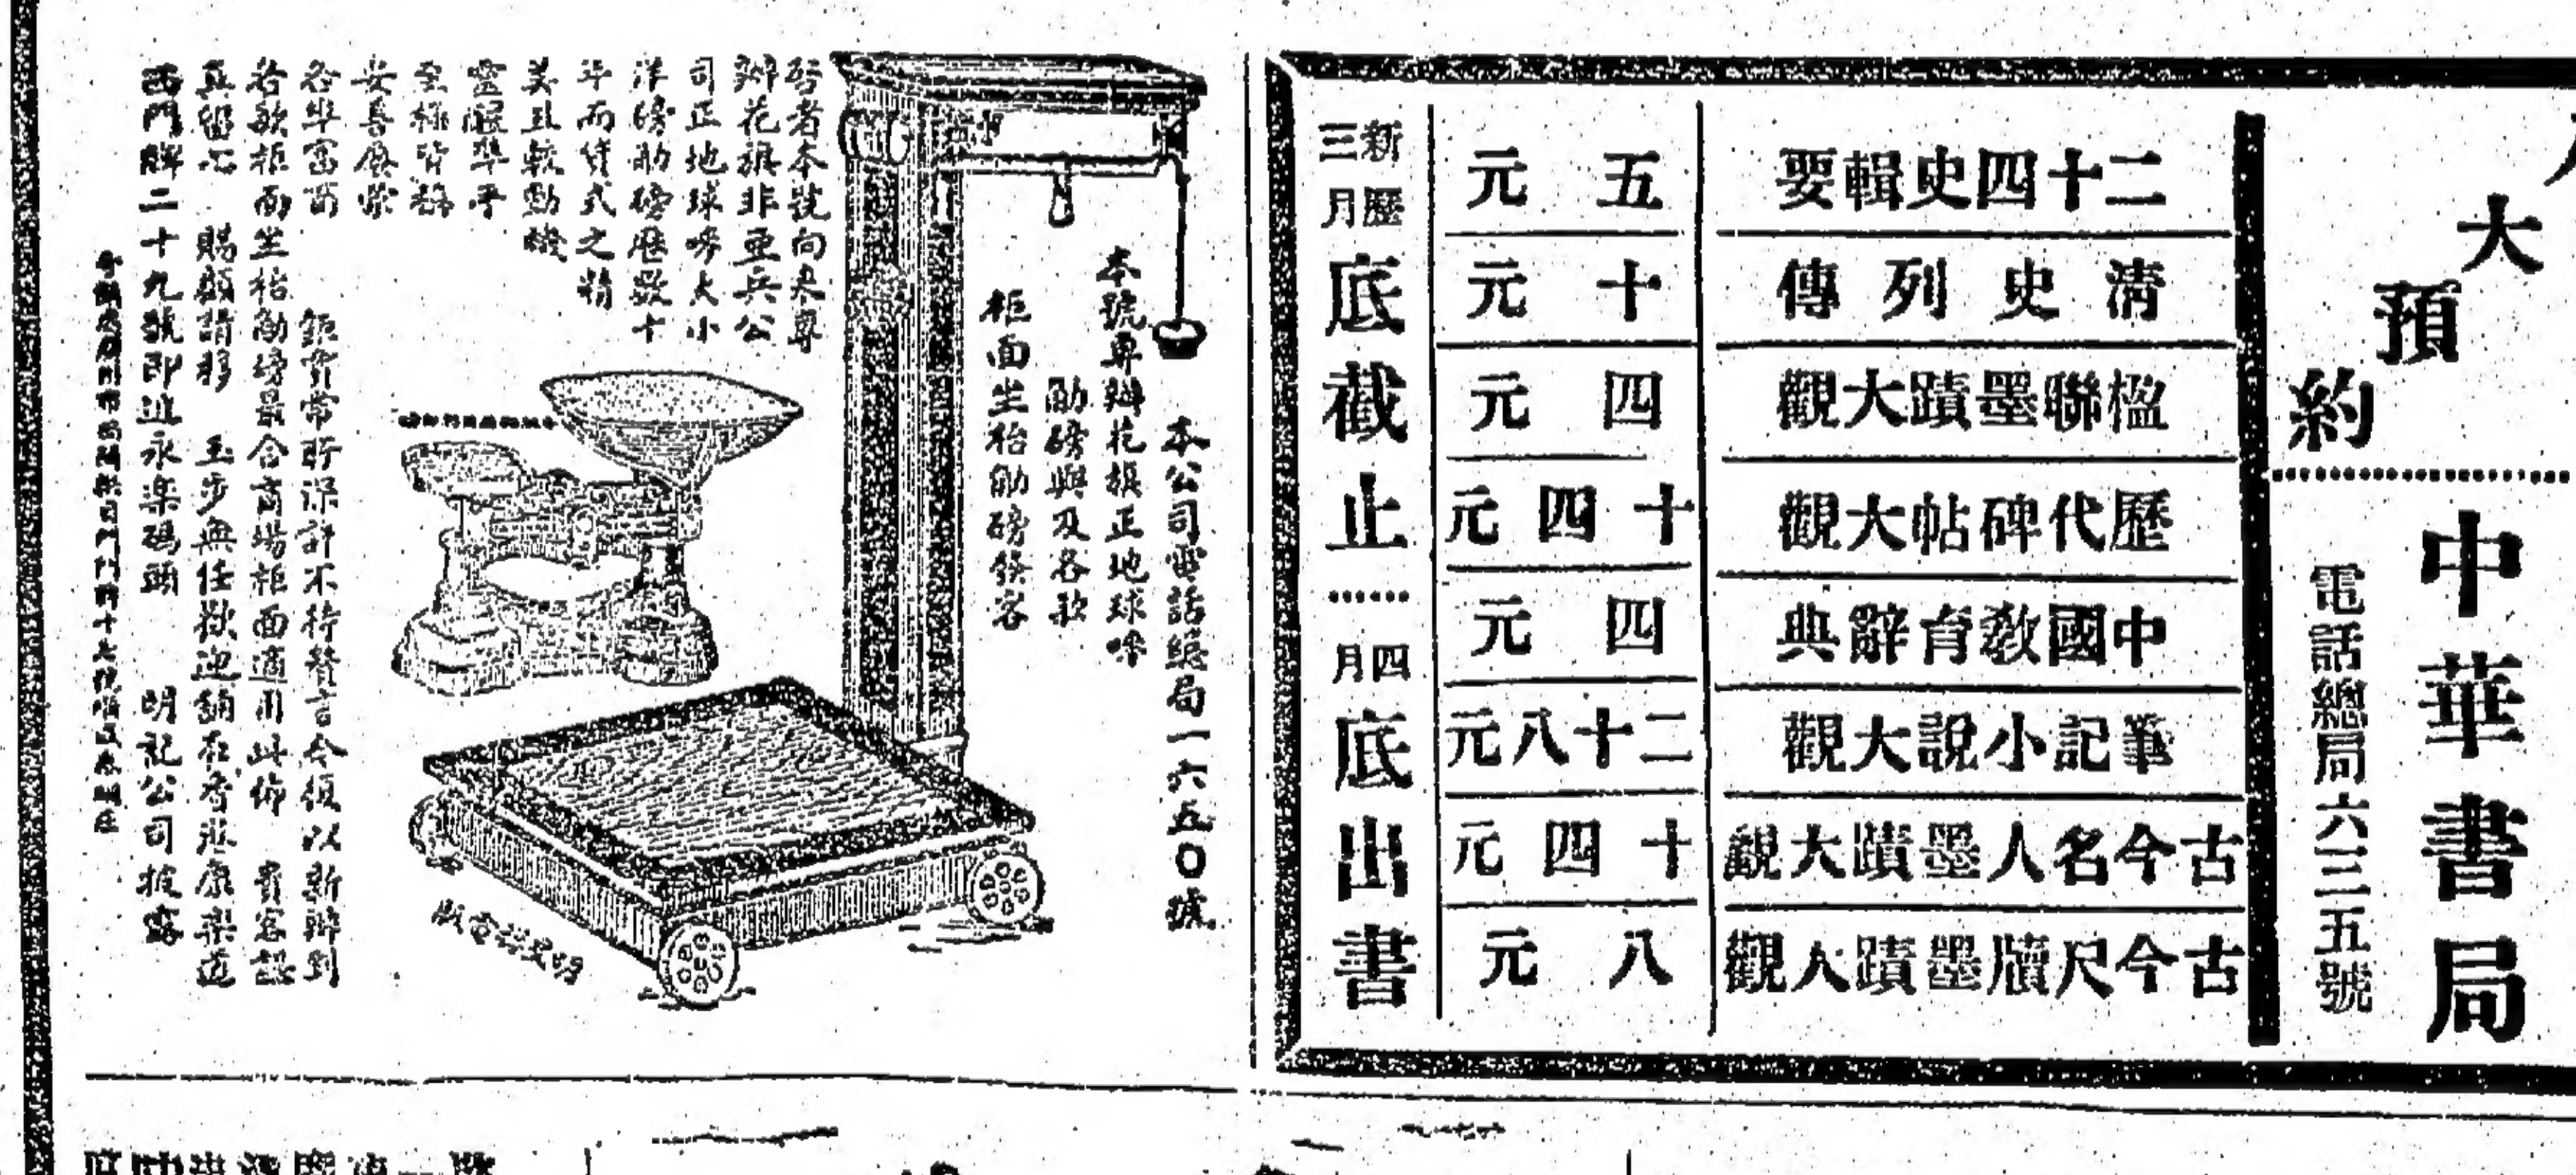 大預約
中華書局
電話總局六三五號
二十四史輯要
五元
清史列傳
十元
楹聯墨蹟大觀
四元
歷代碑帖大觀
十四元
中國教育辭典
四元
筆記小說大觀
二十八元
古今名人墨蹟大觀
十四元
古今尺牘墨蹟大觀
八元
新歷三月底截止
四月底出書
本公司電話總局一六五〇號
本號專辦花旗正地球嘜
磅與及各款
柜面坐枱磅發客
啓者本號向來專
辦花旗非亜兵公
司正地球嘜大小
洋磅磅歷數十
年而貨式之精
美且較點機
靈醒準乎
至極皆稱
妥善久蒙
各埠富商
若欲柜面坐枱磅最合商場柜面適用此佈 貴客認
真留心 賜顧請移 玉步無任歡迎舖在香港康樂道
西門牌二十九號即近永樂碼頭 明記公司披露